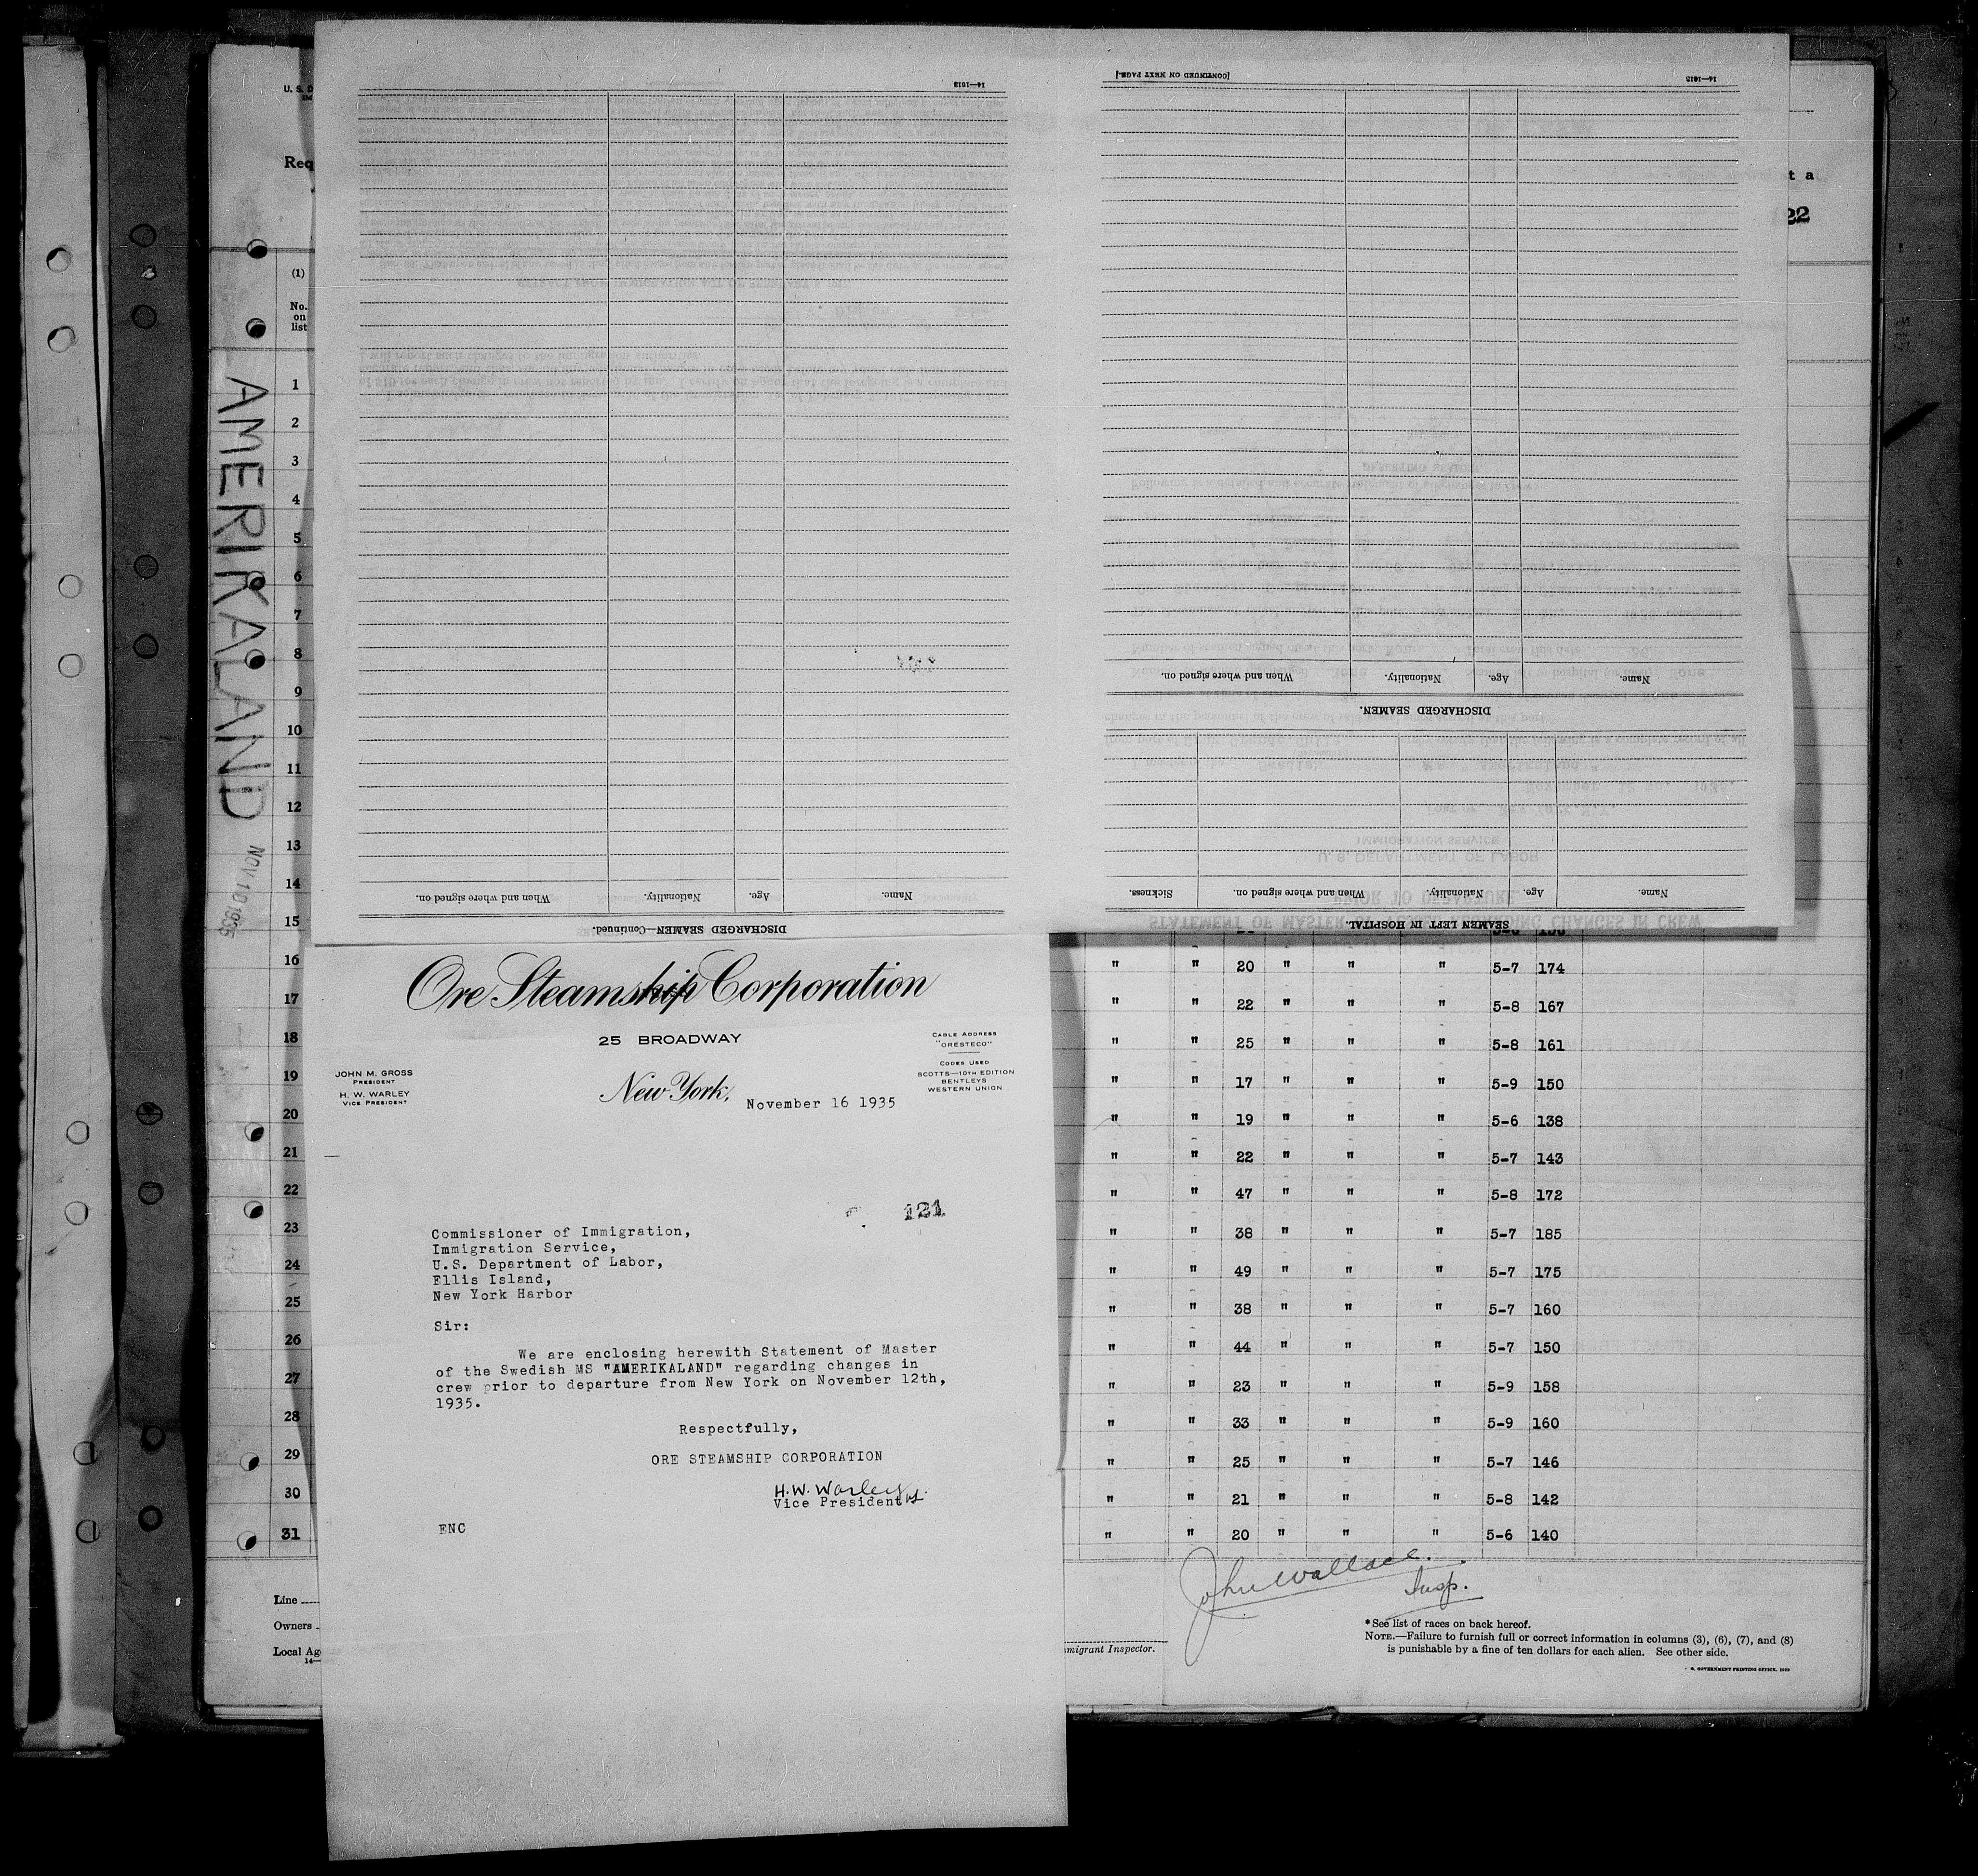 U. S. D
IM
Req
(1)
No.
on
list
AMERIKALAND
NOV 10 1935
1
2
3
4
5
6
7
8
9
10
11
12
13
14
15
16
17
18
19
20
21
22
23
24
25
26
27
28
29
30
31
Line
Owners
Local Ag
14—
14—1613
When and where signed on.
Nationality.
Age.
Name.
DISCHARGED SEAMEN—Continued.
[CONTINUED ON NEXT PAGE.]
14—1613
When and where signed on.
Nationality.
Age.
Name.
DISCHARGED SEAMEN.
Sickness.
When and where signed on.
Nationality.
Age.
Name.
SEAMEN LEFT IN HOSPITAL.
STATEMENT OF MASTER OF VESSEL REGARDING CHANGES IN CREW
PRIOR TO DEPARTURE
U. S. DEPARTMENT OF LABOR
IMMIGRATION SERVICE
t a
22
Ore Steamship Corporation
25 BROADWAY
CABLE ADDRESS
"ORESTECO"
CODES USED
SCOTTS—10TH EDITION
BENTLEYS
WESTERN UNION
JOHN M. GROSS
PRESIDENT
H. W. WARLEY
VICE PRESIDENT
New York, November 16 1935
121
Commissioner of Immigration,
Immigration Service,
U.S. Department of Labor,
Ellis Island,
New York Harbor
Sir:
We are enclosing herewith Statement of Master
of the Swedish MS "AMERIKALAND" regarding changes in
crew prior to departure from New York on November 12th,
1935.
Respectfully,
ORE STEAMSHIP CORPORATION
H.W. Warley
Vice President
ENC
" " 20 " " " 5-7 174
" " 22 " " " 5-8 167
" " 25 " " " 5-8 161
" " 17 " " " 5-9 150
" " 19 " " " 5-6 138
" " 22 " " " 5-7 143
" " 47 " " " 5-8 172
" " 38 " " " 5-7 185
" " 49 " " " 5-7 175
" " 38 " " " 5-7 160
" " 44 " " " 5-7 150
" " 23 " " " 5-9 158
" " 33 " " " 5-9 160
" " 25 " " " 5-7 146
" " 21 " " " 5-8 142
" " 20 " " " 5-6 140
John Wallace.
Insp.
migrant Inspector.
* See list of races on back hereof.
NOTE.—Failure to furnish full or correct information in columns (3), (6), (7), and (8)
is punishable by a fine of ten dollars for each alien. See other side.
GOVERNMENT PRINTING OFFICE